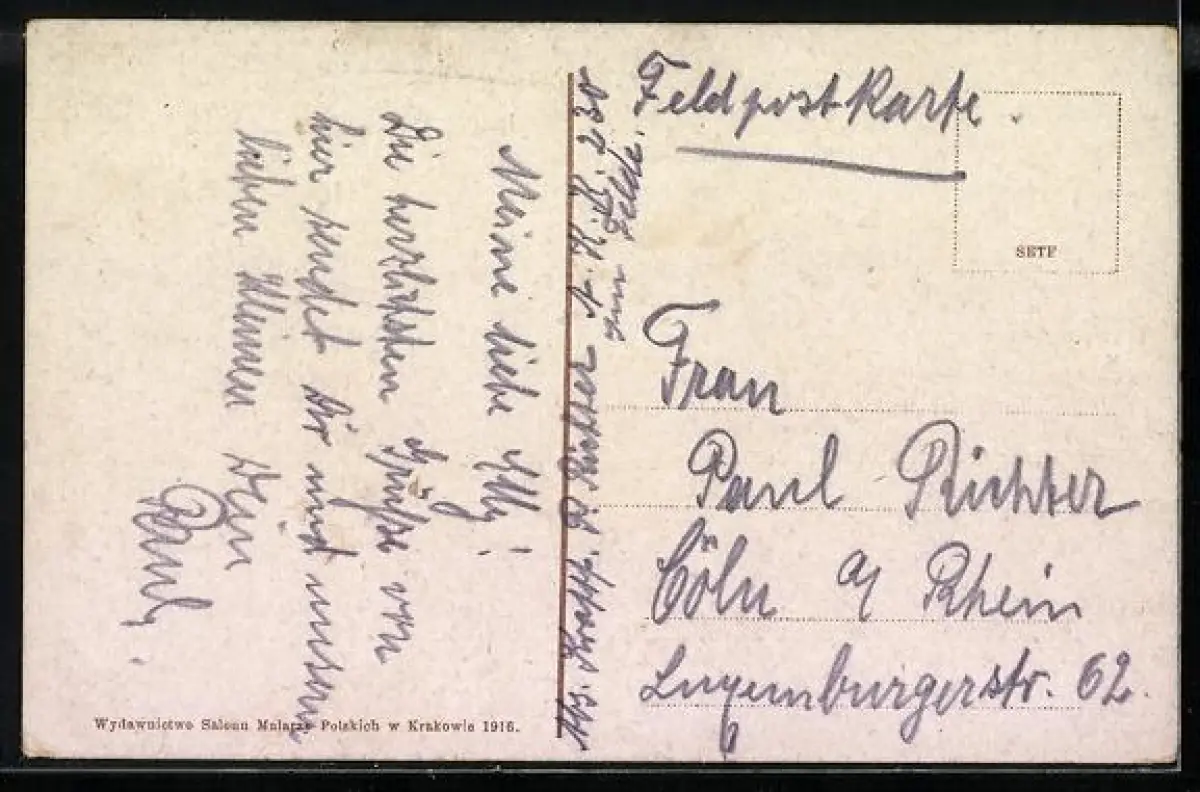 Meine liebe Elly!
Die herzlichsten Grüße von
hier sendet Dir und unserem
lieben Kleinen Dein
Paul.
Wydawnictwo Salonu Malarzy Polskich w Krakowie 1916.
Abs. Kraftf. Richter
zum Felde.
Feldpostkarte.
SETF
Frau
Paul Richter
Cöln a/ Rhein
Luxemburgerstr. 62.